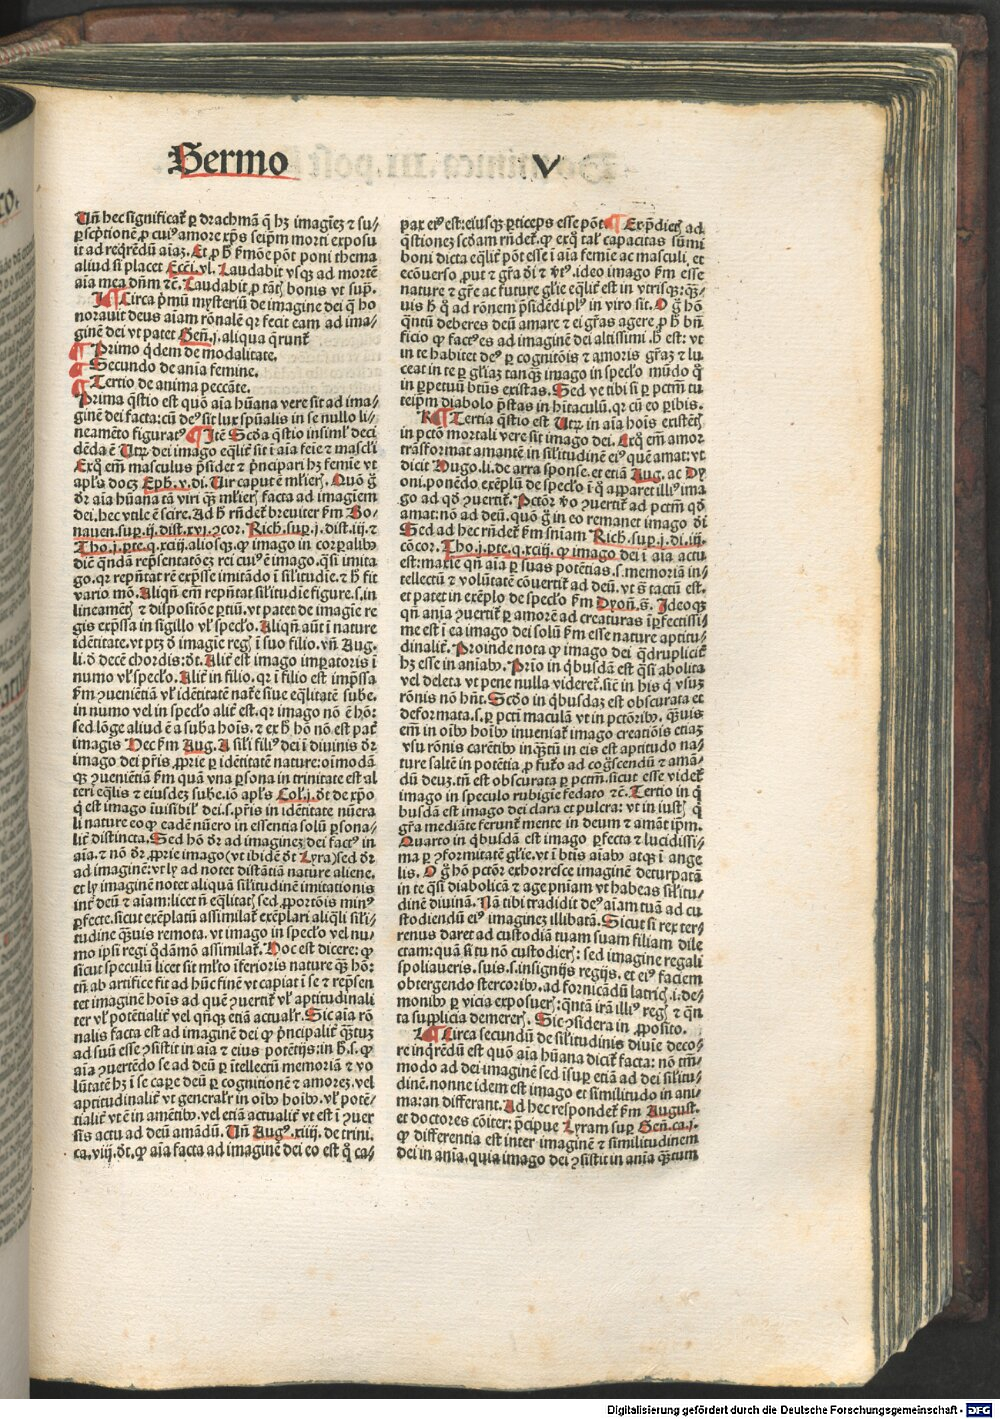 Sermo V
Uñ hec significat̃ ꝑ drachmā q̄ hꝫ imagīeꝫ ⁊ su/
ꝑscptionē ꝓ cuiꝰ amore xp̄s seip̄m morti exposu
it ad reqrēdū aīaꝫ. Et ꝓ ħ ẜmōe pōt poni thema
aliud si placet Ecc̄i.vl. Laudabit vsqꝫ ad mortē
aīa mea dn̄m ⁊c̄. Laudabit ꝓ tātꝭ bonis vt supͣ.
I ¶ Circa pͥmū mysteriū de imagine dei q̄ ho
norauit deus aīam rōnalē qꝛ fecit eam ad ima/
ginē dei vt patet Geñ.j. aliqua q̄runt̃
¶ Primo q̄dem de modalitate.
¶ Secundo de anīa femine.
¶ Tertio de anima peccāte.
Prima q̄stio est quō aīa hūana vere sit ad ima/
ginē dei facta: cū deꝰ sit lux spūalis in se nullo li/
neamēto figuratꝰ ¶ Itē Scd̄a q̄stio insiml̓ deci
dēda ē Utrꝫ dei imago eq̄lit̃ sit ī aīa feīe ⁊ mascl̓i
Exq̊ em̄ masculus p̄sidet ⁊ p̄ncipari hꝫ femīe vt
apl̓s docꝫ Eph̄.v. di. Uir caput ē ml̓ieꝝ. Quō ḡ
dr̄ aīa hūana tā viri qꝫ ml̓ieꝝ facta ad imagīem
dei. hec vtile ē scire. Ad ħ rn̄det̃ breuiter ẜm Bo/
nauen. sup.ij. dist.xvj. ⁊cor. Rich. sup.j. dist.iij. ⁊
Tho.j. ꝑte.q.xciij. aliosqꝫ. ꝙ imago in corꝑalibꝰ
dic̄ q̄ndā repn̄tatōeꝫ rei cuiꝰ ē imago. q̄si imita
go. qꝛ repn̄tat rē exp̄sse imitādo ī sil̓itudīe. ⁊ ħ fit
vario mō. Aliqn̄ em̄ repn̄tat sil̓itudīe figure. s. in
lineamētꝭ ⁊ dispositōe ꝑtiū. vt patet de imagīe re
gis exp̄ssa in sigillo vl̓ specl̓o. Aliqn̄ aūt ī nature
idētitate. vt ptꝫ d̄ imagīe regꝭ ī suo filio. vn̄ Aug.
li. d̄ decē chordis: dt̄. Alit̃ est imago impatoris ī
numo vl̓ specl̓o. Alit̃ in filio. qꝛ ī filio est imp̄ssa
ẜm ꝯueniētiā vl̓ idētitatē nat̄e siue eq̄litatē sub̄e.
in numo vel in specl̓o alit̃ est. qꝛ imago nō ē hō:
sed lōge aliud ē a suba hoīs. ⁊ ex ħ hō nō est pat̃
imagīs Hec ẜm Aug. A sil̓i filiꝰ dei ī diuinis dr̄
imago dei pr̄is ꝓprie ꝑ idētitatē nature: oīmodā
qꝫ ꝯueniētiā ẜm quā vna ꝑsona in trinitate est al
teri eq̄lis ⁊ eiusdeꝫ sub̄e. iō apl̓s Col̓.j. dt̄ de xp̄o
q̄ est imago īuisibil̓ dei. s. pr̄is in idētitate nūera
li nature eo ꝙ eadē nūero in essentia solū ꝑsona/
lit̃ distincta. Sed hō dr̄ ad imagineꝫ dei factꝰ in
aīa. ⁊ nō dr̄ ꝓprie imago (vt ibidē dt̄ Lyra) sed dr̄
ad imaginē: vt ly ad notet distātiā nature aliene.
et ly imaginē notet aliquā sil̓itudinē imitationis
int̃ deū ⁊ aīam: licet n̄ eq̄litatꝭ sed ꝓportōis minꝰ
ꝑfecte. sicut exēplatū assimilat̃ exēplari aliq̄li sil̓i/
tudine qꝫuis remota. vt imago in specl̓o vel nu/
mo ip̄si regi q̄dāmō assimilat̃. Hoc est dicere: ꝙ
sicut speculū licet sit ml̓to īferioris nature qꝫ hō:
tn̄ ab artifice fit ad hūc finē vt capiat ī se ⁊ rep̄sen
tet imaginē hoīs ad quē ꝯuertit̃ vl̓ aptitudinali
ter vl̓ potētialit̃ vel qn̄qꝫ etiā actualr̄. Sic aīa rō
nalis facta est ad imaginē dei ꝙ p̄ncipalit̃ qꝫtuꝫ
ad suū esse ꝯsistit in aīa ⁊ eius potētijs: in ħ. s. ꝙ
aīa ꝯuertēdo se ad deū ꝑ ītellectū memoriā ⁊ vo
lūtatē hꝫ ī se caꝑe deū ꝑ cognitionē ⁊ amoreꝫ. vel
aptitudinalit̃ vt generalr̄ in oībꝰ hoībꝰ. vl̓ potē/
tialit̃ vt ē in amētibꝰ. vel etiā actualit̃ vt est ī ꝯuer
sis actu ad deū amādū. Uñ Augꝰ. xiiij. de trini.
ca.viij. dt̄. ꝙ aīa facta ad imaginē dei eo est q̊ ca/
pax eiꝰ est: eiusqꝫ ꝑticeps esse pōt. ¶ Exp̄dietꝭ ad
q̄stiones scd̄am rn̄det̃. ꝙ exq̊ tal̓ capacitas sūmi
boni dicta eq̄lit̃ pōt esse ī aīa femīe ac masculi. et
ecōuerso ꝓut ⁊ gr̄a dī ⁊ vtꝰ. ideo imago ẜm esse
nature ⁊ gr̄e ac future gl̓ie eq̄lit̃ est in vtrisqꝫ: qꝫ/
uis ħ q̊ ad rōnem p̄sidēdi plꝰ in viro sit. O ḡ hō
q̄ntū deberes deū amare ⁊ ei gr̄as agere ꝓ ħ bn̄
ficio ꝙ factꝰ es ad imaginē dei altissimi. ħ est: vt
in te habitet deꝰ ꝑ cognitōis ⁊ amoris gr̄aꝫ ⁊ lu
ceat in te ꝑ gl̓iaꝫ tanqꝫ imago in specl̓o mūdo q̄
in ꝑpetuū btūs existas. Sed ve tibi si ꝑ pctm̄ tu
teip̄m diabolo p̄stas in hītaculū. qꝛ cū eo ꝑibis.
K ¶ Tertia q̄stio est Utrꝫ in aīa hoīs existētꝭ
in pctō mortali vere sit imago dei. Exq̊ em̄ amor
trāsformat amantē in sil̓itudinē eiꝰ quē amat: vt
dicit Hugo. li. de arra sponse. et etiā Aug. ac Dy
oni. ponēdo exēplū de specl̓o ī q̊ apparet illiꝰ ima
go ad qd̄ ꝯuertit̃. Pctōr v̄o ꝯuertit̃ ad pctm̄ qd̄
amat: nō ad deū. quō ḡ in eo remanet imago dī
Sed ad hec rn̄det̃ ẜm sniam Rich. sup.j. di.iij.
cōcor. Tho.j. ꝑte.q.xciij. ꝙ imago dei ī aīa actu
est: maxīe qn̄ aīa ꝑ suas potētias. s. memoriā in/
tellectū ⁊ volūtatē cōuertit̃ ad deū. vt s̄ tactū est.
et patet in exēplo de specl̓o ẜm Dyoñ. s̄. Ideoqꝫ
qn̄ anīa ꝯuertit̃ ꝑ amorē ad creaturas īꝑfectissi/
me est ī ea imago dei solū ẜm esse nature aptitu/
dinalit̃. Proinde nota ꝙ imago dei q̄druplicit̃
hꝫ esse in aniabꝰ. Prīo in q̄busdā est q̄si abolita
vel deleta vt pene nulla videret̃. sic̄ in his q̄ vsuꝫ
rōnis nō hn̄t. Scd̄o in q̄busdaꝫ est obscurata et
deformata. s. ꝑ pcti maculā vt in pctōribꝰ. qꝫuis
em̄ in oībꝰ hoībꝰ inueniat̃ imago creatiōis etiaꝫ
vsu rōnis carētibꝰ inqꝫtū in eis est aptitudo na/
ture saltē in potētia ꝓ fut̃o ad cogscendū ⁊ amā/
dū deuꝫ. tn̄ est obscurata ꝑ pctm̄. sicut esse videt̃
imago in speculo rubigīe fedato ⁊c̄. Tertio in q̄
busdā est imago dei clara et pulcra: vt in iustꝭ q̄
gr̄a mediāte ferunt̃ mente in deum ⁊ amāt ip̄m.
Quarto in q̄busdā est imago ꝑfecta ⁊ lucidissi/
ma ꝑ ꝯformitatē gl̓ie. vt ī btīs aīabꝰ atqꝫ ī ange
lis. O ḡ hō pctōr exhorresce imaginē deturpatā
in te q̄si diabolicā ⁊ age pn̄iam vt habeas sil̓itu/
dinē diuinā. Nā tibi tradidit deꝰ aīam tuā ad cu
stodiendū eiꝰ imagineꝫ illibatā. Sicut si rex ter/
renus daret ad custodiā tuam suam filiam dile
ctam: quā si tu nō custodieꝭ: sed imagine regali
spoliaueris. suis. s. insignijs regijs. et eiꝰ faciem
obtergendo stercoribꝰ. ad fornicādū latrici. i. de/
monibꝰ ꝑ vicia exposueꝭ: q̄ntā irā illiꝰ regꝭ ⁊ q̄n
ta supplicia demereꝭ. Sic ꝯsidera in ꝓposito.
L ¶ Circa secundū de sil̓itudinis diuīe deco/
re inqrēdū est quō aīa hūana dicit̃ facta: nō tm̄/
modo ad dei imaginē sed īsuꝑ etiā ad dei sil̓itu/
dinē. nonne idem est imago et similitudo in ani/
ma: an differant. Ad hec respondet̃ ẜm August.
et doctores cōiter: p̄cipue Lyram suꝑ Geñ.ca.j.
ꝙ differentia est inter imaginē ⁊ similitudinem
dei in anīa. quia imago dei ꝯsistit in anīa qꝫtum
Digitalisierung gefördert durch die Deutsche Forschungsgemeinschaft - DFG